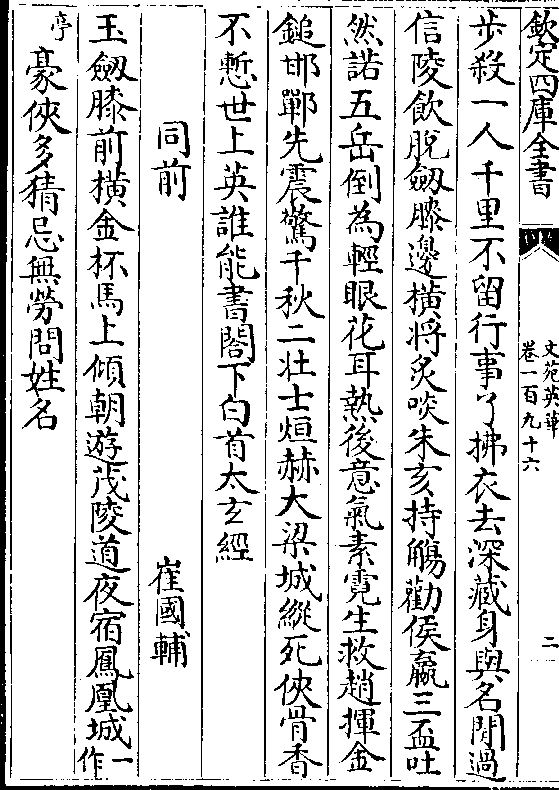 欽定四庫全書
文苑英華
卷一百九十六
二
步殺一人千里不留行事了拂衣去深藏身與名閒過
信陵飲脫劔膝邊橫將炙啖朱亥持觴勸侯嬴三盃吐
然諾五岳倒為輕眼花耳熱後意氣素霓生救趙揮金
鎚邯鄲先震驚千秋二壮士烜赫大梁城縱死俠骨香
不慙世上英誰能書閣下白首太玄經
同前
崔國輔
玉劔膝前橫金杯馬上傾朝遊茂陵道夜宿鳳凰城一作
亭豪俠多猜忌無勞問姓名